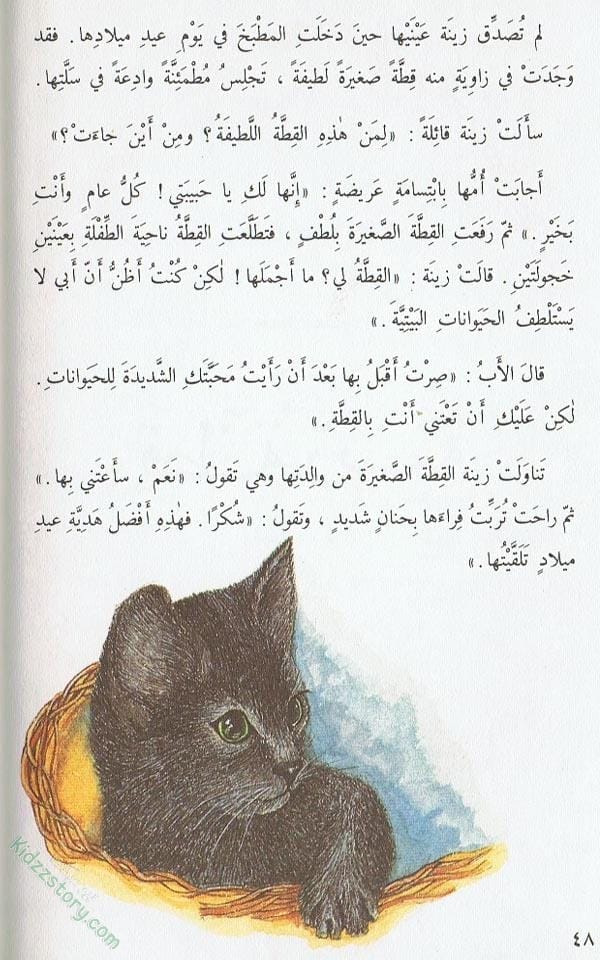 لم تُصَدِّق زينَة عَيْنَيْها حينَ دَخَلَتِ المَطْبَخَ في يَوْمِ عيدِ ميلادِها. فقد
وَجَدَتْ في زاوِيَةٍ منه قِطَّةً صَغيرَةً لَطيفَةً ، تَجْلِسُ مُطْمَئِنَّةً وادِعَةً في سَلَّتِها.
سأَلَتْ زينَة قائِلَةً : «لِمَنْ هٰذِهِ القِطَّةُ اللَّطيفَةُ؟ ومِنْ أَيْنَ جاءَتْ؟»
أَجابَتْ أُمُّها بِابْتِسامَةٍ عَريضَةٍ : «إِنَّها لَكِ يا حَبيبَتي! كُلُّ عامٍ وأَنْتِ
بَخَيْرٍ.» ثمّ رَفَعَتِ القِطَّةَ الصَّغيرَةَ بِلُطْفٍ ، فتَطَلَّعَت القِطَّةُ ناحِيَةَ الطِّفْلَة بِعَيْنَيْنِ
خَجولَتَيْنِ. قالَتْ زينَة : «القِطَّةُ لي؟ ما أَجْمَلَها! لٰكِنْ كُنْتُ أَظُنُّ أَنّ أَبي لا
يَسْتَلْطِفُ الحَيَواناتِ البَيْتِيَّةَ.»
قالَ الأَبُ : «صِرْتُ أَقْبَلُ بِها بَعْدَ أَنْ رَأَيْتُ مَحَبَّتَكِ الشَّديدَةَ لِلحَيَواناتِ.
لٰكِنْ عَلَيْكِ أَنْ تَعْتَني أَنْتِ بِالقِطَّةِ.»
تَناوَلَتْ زينَة القِطَّةَ الصَّغيرَةَ من والِدَتِها وهي تَقولُ : «نَعَمْ ، سأَعْتَني بِها.»
ثمّ راحَتْ تُرَبِّتُ فِراءَها بِحَنانٍ شَديدٍ ، وتَقولُ : «شُكْرًا. فهٰذِهِ أَفْضَلُ هَدِيَّةِ عيدِ
ميلادٍ تَلَقَّيْتُها.»
Kidzzstory.com
٤٨